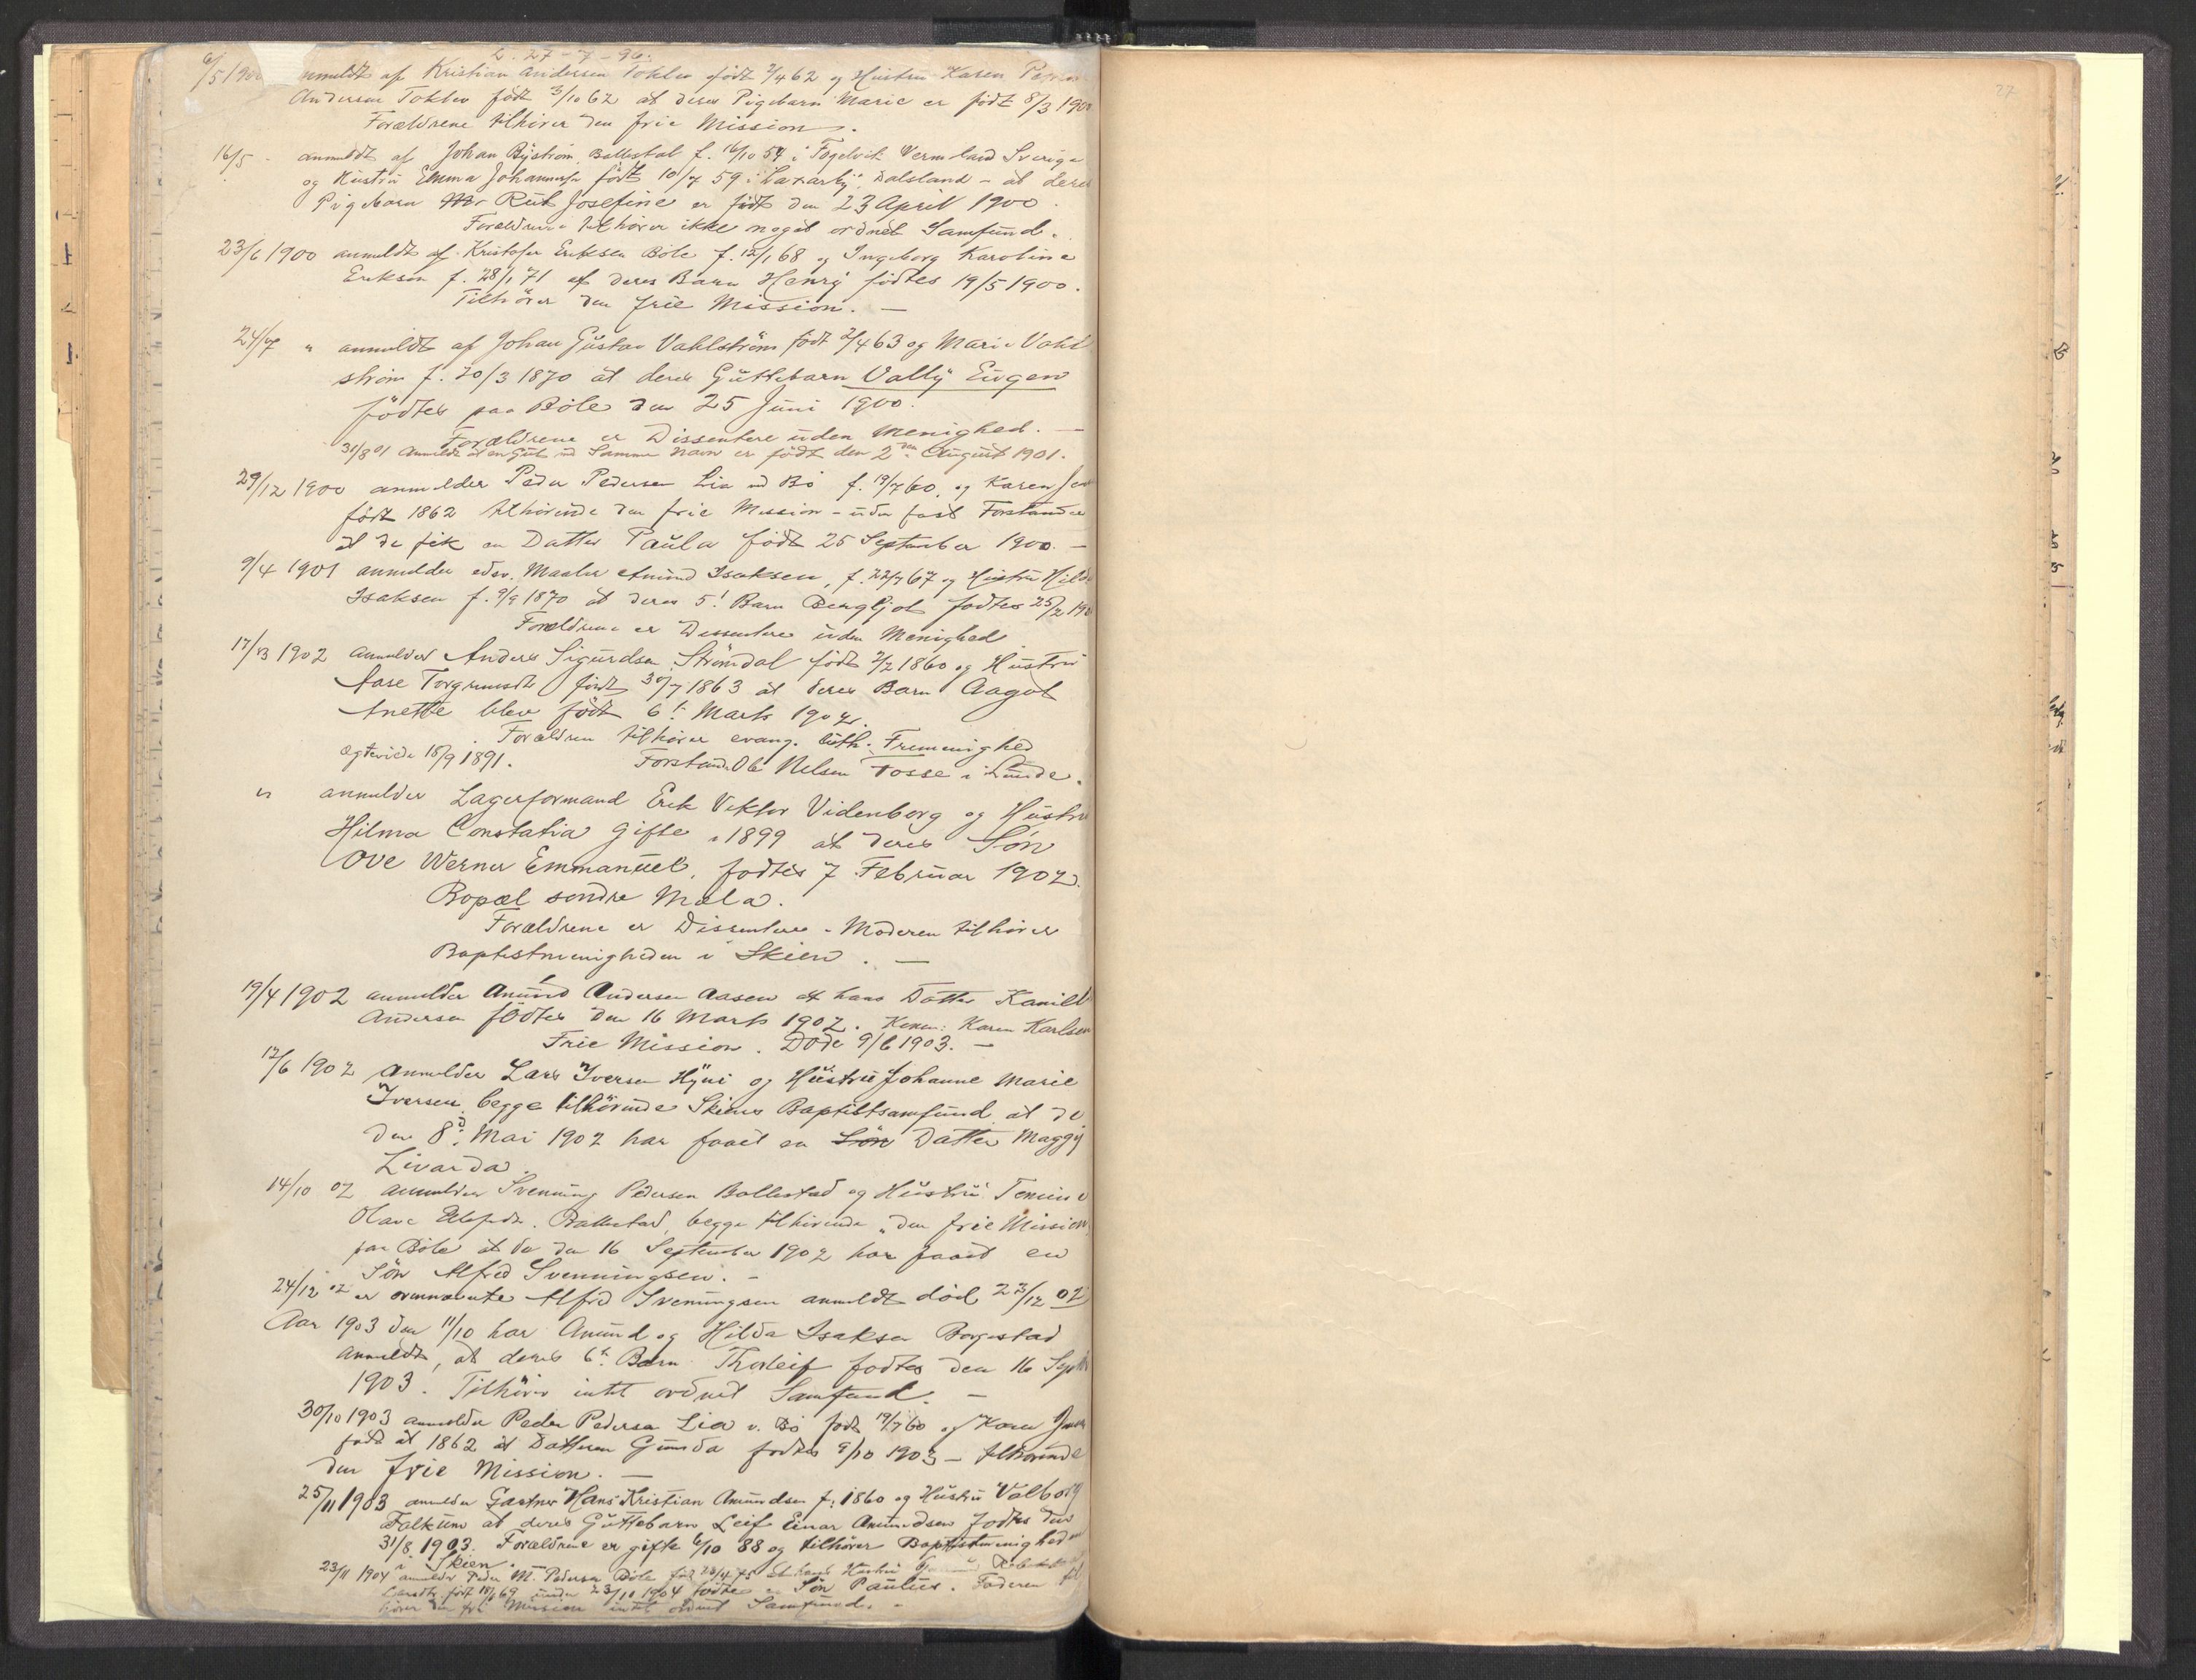 G. 27-7-96.
6/5 1900 anmeldt af Kristian Andersen Toklev født 2/4 62 og Hustru Karen
Andersen Toklev født 3/10 62 at deres Pigebarn Marie er født 8/3 1900
Forældrene tilhører den frie Mission.
16/5 - anmeldt af Johan Byström, Bollestad f. 16/10 54 i Fogelvik Vermland Sverige
og Hustru Emma Johannesen født 10/7 59 i Laxarby, Dalsland - at deres
Pigebarn Rut Josefine er født den 23 April 1900.
Forældrene tilhører ikke noget ordnet Samfund.
23/6 1900 anmeldt af Kristofer Eriksen Böle f. 12/1 68 og Ingeborg Karoline
Eriksen f. 28/1 71 at deres Barn Henry födtes 19/5 1900.
Tilhörer den frie Mission. —
24/7 " anmeldt af Johan Gustav Vahlström født 2/4 63 og Marie Vahl
ström f. 20/3 1870 at deres Guttebarn Vally Eugen
födtes paa Böle den 25 Juni 1900.
Forældrene er Dissentere uden Menighed. —
31/8 01 Anmeldt at en Gut ved Samme Navn er født den 2den August 1901.
29/12 1900 anmelder Peder Pedersen Lia ved Bö f. 19/7 60, og Karen
født 1862 tilhørende den frie Mission - uden fast Forstander
at de fik en Datter Paula født 25 September 1900. —
9/4 1901 anmelder edsv. Maaler Amund Isaksen, f. 22/7 67 og Hustru Hilda
Isaksen f. 9/9 1870 at deres 5! Barn Bergljot fødtes 25/2 190
Forældrene er Dissentere uden Menighed.
17/3 1902 anmelder Anders Sigurdsen Strömdal født 2/2 1860 og Hustru
Aase Torgrimsdtr født 30/7 1863 at deres Barn Aagot
Anette blev født 6te Marts 1902.
Forældren tilhører evang. luth. Frimenighed
ægteviede 18/9 1891. Forstand. Ole Nelsen Fosse i Lunde.
" anmelder Lagerformand Erik Viktor Videnborg og Hustru
Hilma Constatia gifte i 1899 at deres Sön
Ove Werner Emmanuel, fødtes 7 Februar 1902.
Bopæl søndre Mæla.
Forældrene er Dissentere - Moderen tilhører
Baptistmenigheden i Skien. —
19/4 1902 anmelder Amund Andersen Aasen at hans Datter Kamill
Andersen fødtes den 16 Marts 1902. Konen: Karen Karlsen
Frie Mission. Döde 9/6 1903. —
12/6 1902 anmelder Lars Iversen Hyni og Hustru Johanne Marie
Iversen begge tilhörende Skiens Baptistsamfund at de
den 8de Mai 1902 har faaet en Sön Datter Maggy
Livarda.
14/10 02 anmelder Svenning Pedersen Bollestad og Hustru
Olave Bollestad, begge tilhörende "den frie Mission
paa Böle at de den 16 September 1902 har faaet en
Sön Alfred Svenningsen. -
24/12 02 er ovennævnte Alfred Svenningsen anmeldt död 23/12 02
Aar 1903 den 11/10 har Amund og Hilda Isaksen Borgestad
anmeldt, at deres 6te Barn Thorleif fødtes den 16 Septbr
1903. Tilhörer intet ordnet Samfund. —
30/10 1903 anmelder Peder Pedersen Lia v. Bö født 19/7 60 og Karen
født at 1862 at Datteren Gunda fødtes 9/10 1903 - tilhörende
den frie Mission. —
25/11 1903 anmelder Gartner Hans Kristian Amundsen f. 1860 og Hustru Valborg
Falkum at deres Guttebarn Leif Einar Amundsen fødtes den
31/8 1903. Forældrene er gifte 6/10 88 og tilhører Baptistmenigheden
i Skien.
23/11 1904 anmelder Peder M. Pedersen Böle født 28/4 75 at hans Hustru
Larsdtr født 18/1 69 under 23/10 1904 fødte en Sön Paulus. Faderen til
hører den frie Mission intet ordnet Samfund. -
27